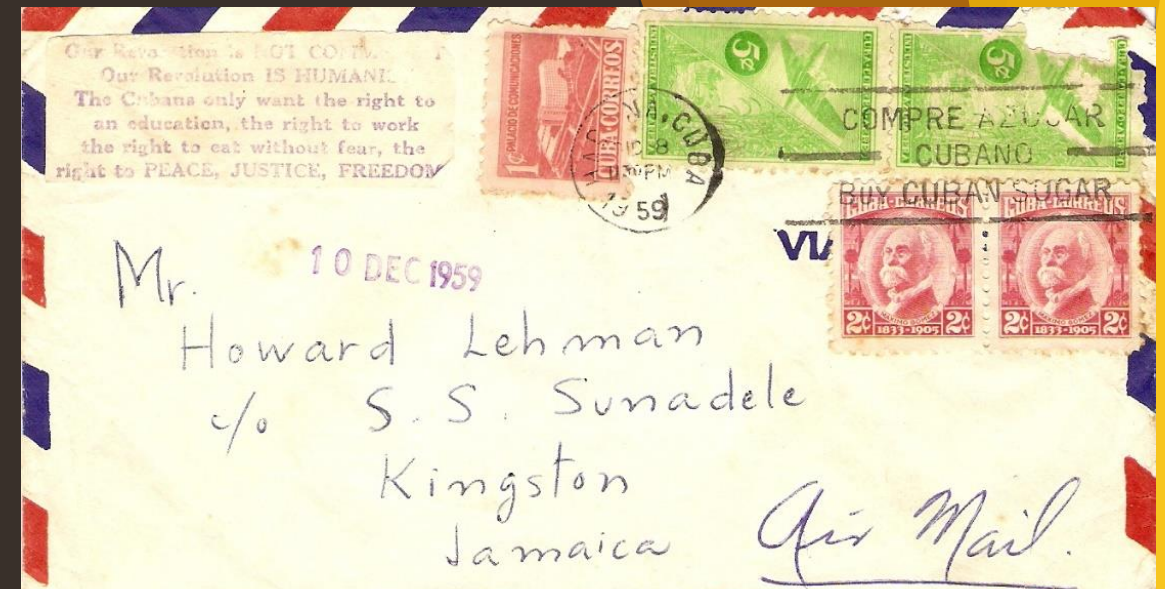 Our Revolution is NOT
Our Revolution IS
The Cubans only want the right to
an education, the right to work
the right to eat without fear, the
right to PEACE, JUSTICE, FREEDOM
1c
PALACIO DE COMUNICACIONES
CUBA·CORREOS
5¢
5¢
CUBA
8
PM
1959
COMPRE AZUCAR
CUBANO
BUY CUBAN SUGAR
10 DEC 1959
CUBA·CORREOS
MAXIMO GOMEZ
2¢ 1833-1905 2¢
CUBA·CORREOS
MAXIMO GOMEZ
2¢ 1833-1905 2¢
Mr.
Howard Lehman
c/o S. S. Sunadele
Kingston
Jamaica
Air Mail.